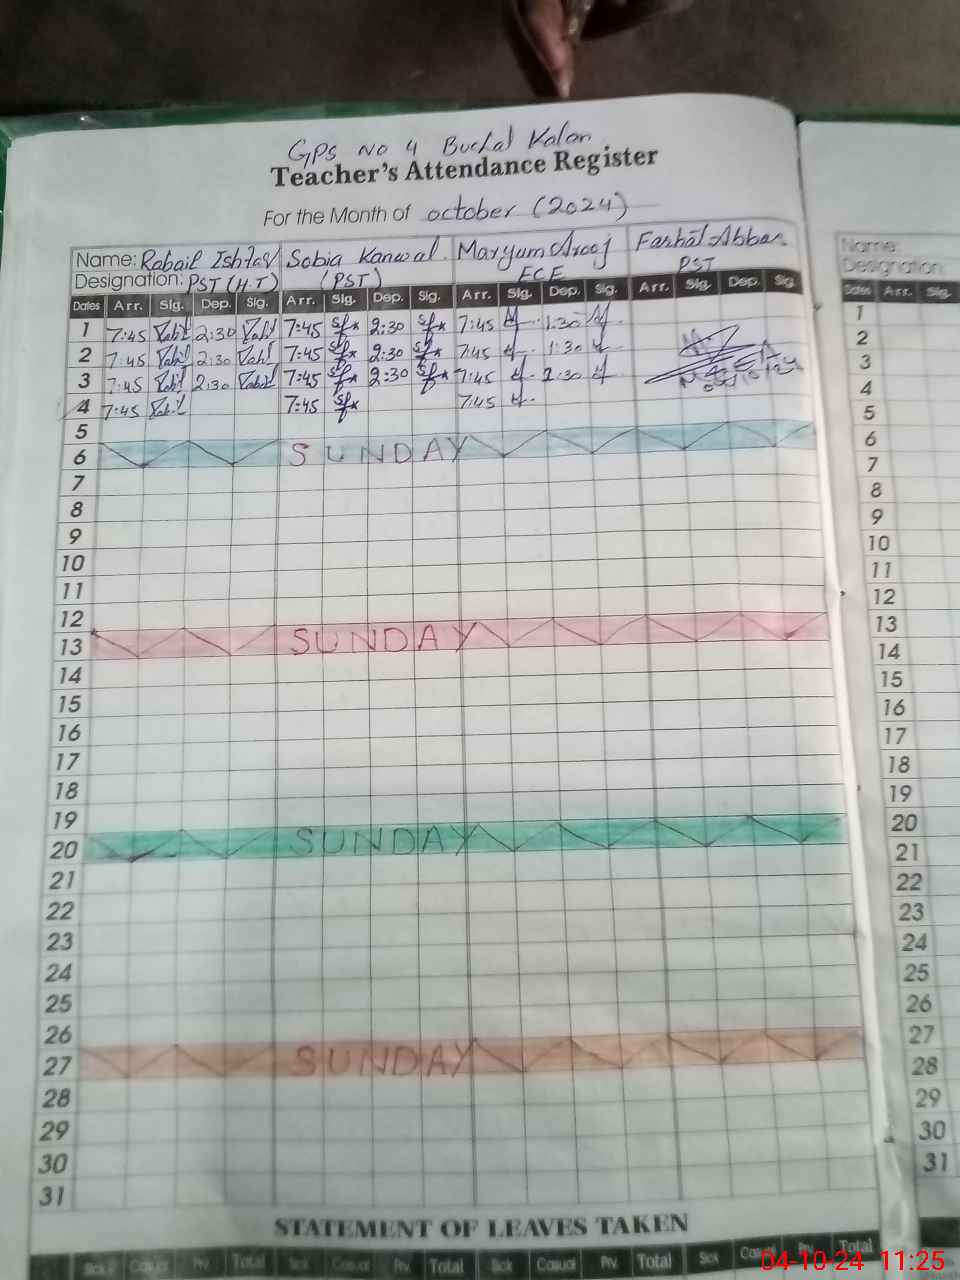 GPS NO 4 Buchal Kalan
Teacher's Attendance Register
For the Month of october (2024)
Name: Rabail Ishtaq Sobia Kanwal Maryum Arooj Farhat Abbas Name:
Designation: PST (H.T) (PST) ECE PST Designation:
Dates Arr. Sig. Dep. Sig. Arr. Sig. Dep. Sig. Arr. Sig. Dep. Sig. Arr. Sig. Dep. Sig. Dates Arr. Sig.
1 7:45 2:30 7:45 2:30 7:45 1:30 1
2 7:45 2:30 7:45 2:30 7:45 1:30 2
3 7:45 2:30 7:45 2:30 7:45 2:30 3
4 7:45 7:45 7:45 4
5 5
6 SUNDAY 6
7 7
8 8
9 9
10 10
11 11
12 12
13 SUNDAY 13
14 14
15 15
16 16
17 17
18 18
19 19
20 SUNDAY 20
21 21
22 22
23 23
24 24
25 25
26 26
27 SUNDAY 27
28 28
29 29
30 30
31 31
STATEMENT OF LEAVES TAKEN
Sick Casual Prv. Total Sick Casual Prv. Total Sick Casual Prv. Total Sick Casual Prv. Total
04-10-24 11:25